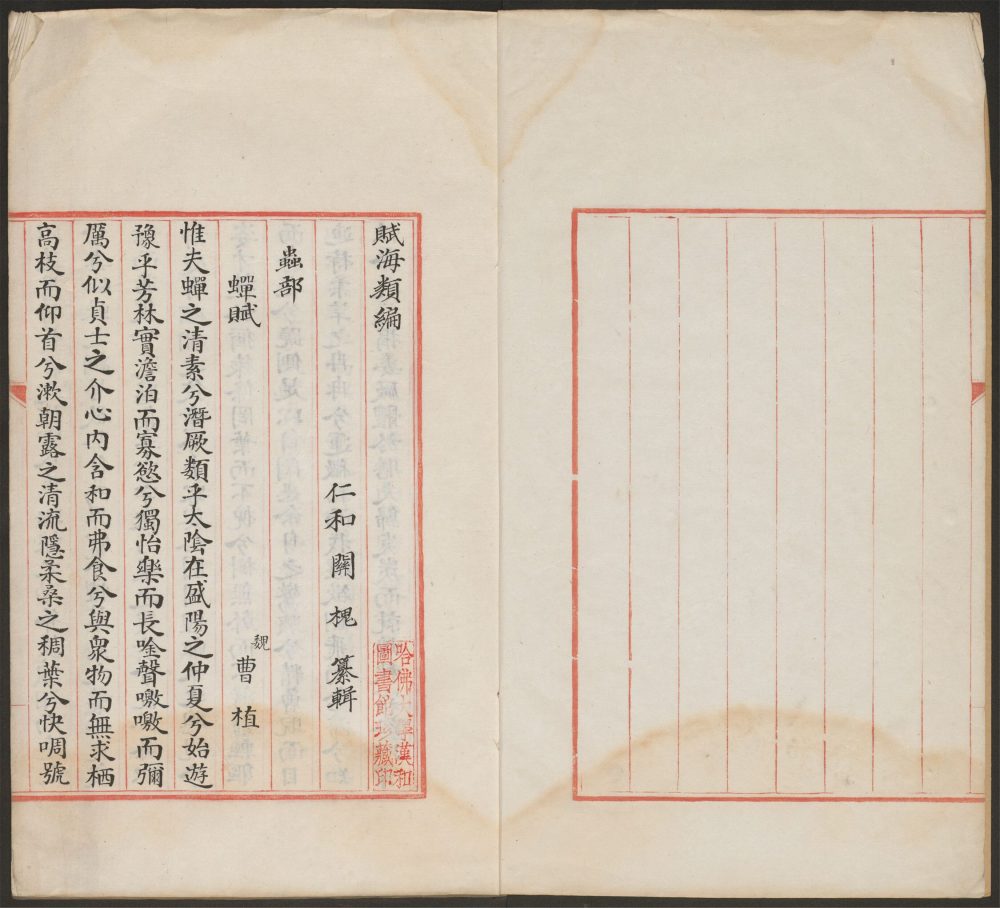 賦海類編
仁和關槐纂輯
哈佛大學漢和
圖書館珍藏印
蟲部
蟬賦
魏曹植
惟夫蟬之清素兮潛厥類乎太陰在盛陽之仲夏兮始遊
豫乎芳林實澹泊而寡慾兮獨怡樂而長唫聲噭噭而彌
厲兮似貞士之介心内含和而弗食兮與衆物而無求栖
高枝而仰首兮漱朝露之清流隱柔桑之稠葉兮快啁號